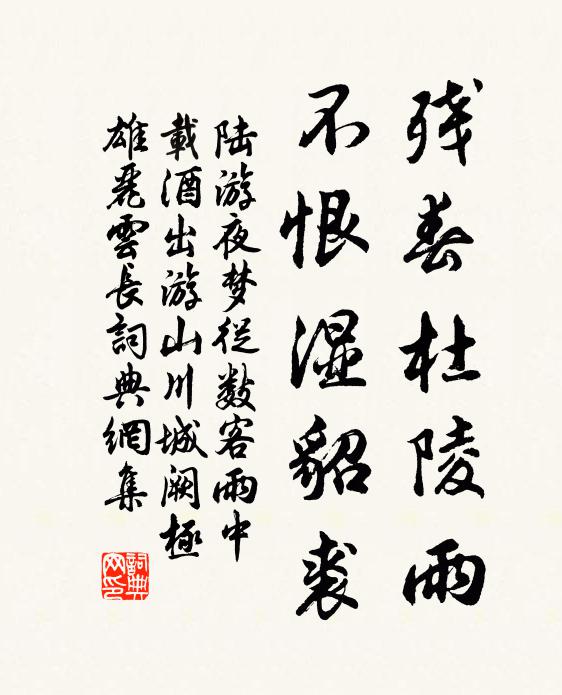 残春杜陵雨
不恨湿貂裘
陆游夜梦從数客雨中
載酒出游山川城阙極
雄麗雲長詞典網集
詞典
网印